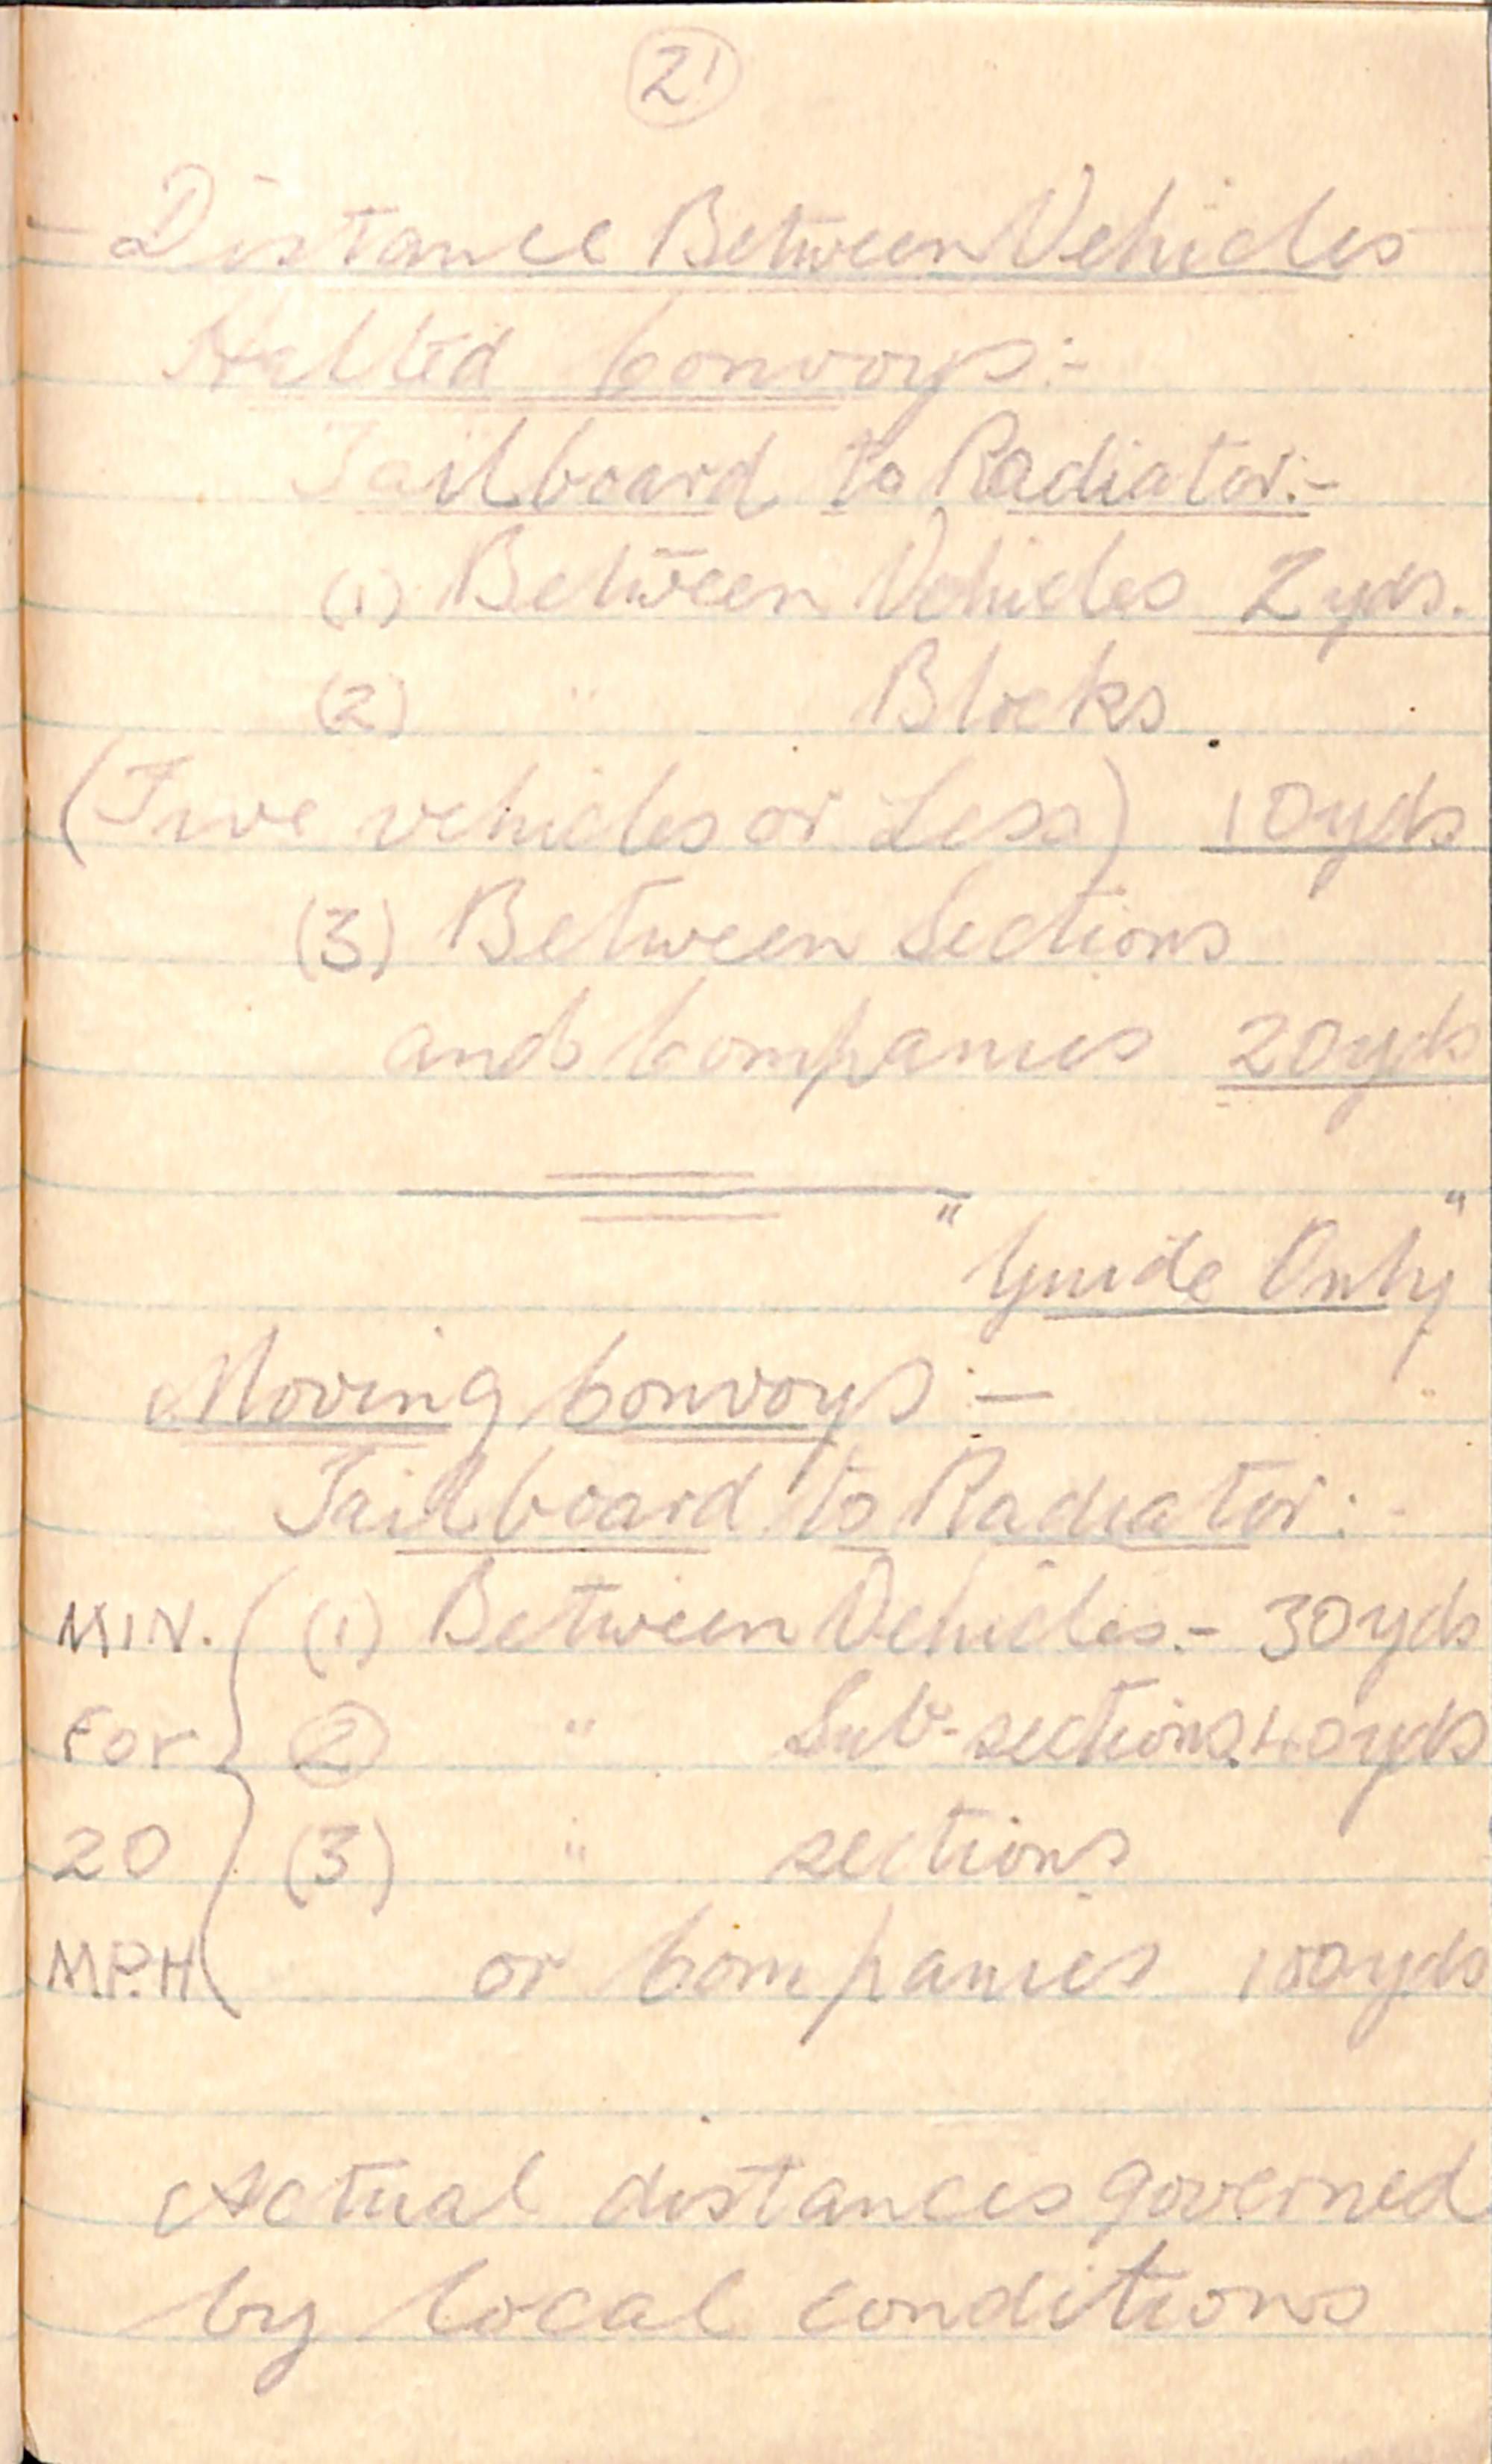 21
Distance Between Vehicles
Halted Convoys:-
Tailboard to Radiator:-
(1) Between Vehicles 2 yds.
(2) " Blocks
(Five vehicles or Less) 10 yds
(3) Between Sections
and Companies 20 yds
"Guide Only"
Moving Convoys:-
Tailboard to Radiator:-
MIN. (1) Between Vehicles:- 30 yds
For (2) " Sub-sections. 40 yds
20 (3) " sections
M.P.H or Companies 100 yds
Actual distances governed
by local conditions